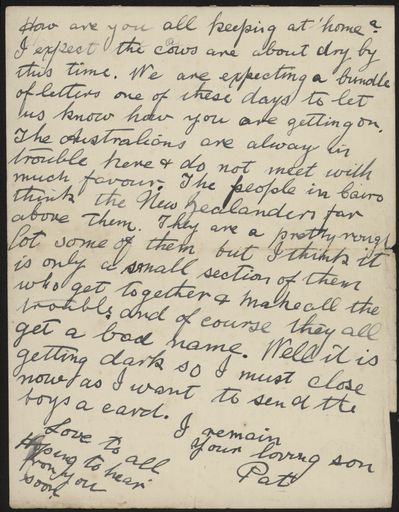 How are you all keeping at home a
I expect the cows are about dry by
this time. We are expecting a bundle
of letters one of these days to let
us know how you are getting on.
The Australians are alway in
trouble here & do not meet with
much favour. The people in Cairo
think the New Zealanders far
above them. They are a pretty rough
lot some of them but I think it
is only a small section of them
who get together & make all the
trouble and of course they all
get a bad name. Well it is
getting dark so I must close
now as I want to send the
boys a card.
I remain
your loving son
Pat
Love to all
Hoping to hear
from you
soon